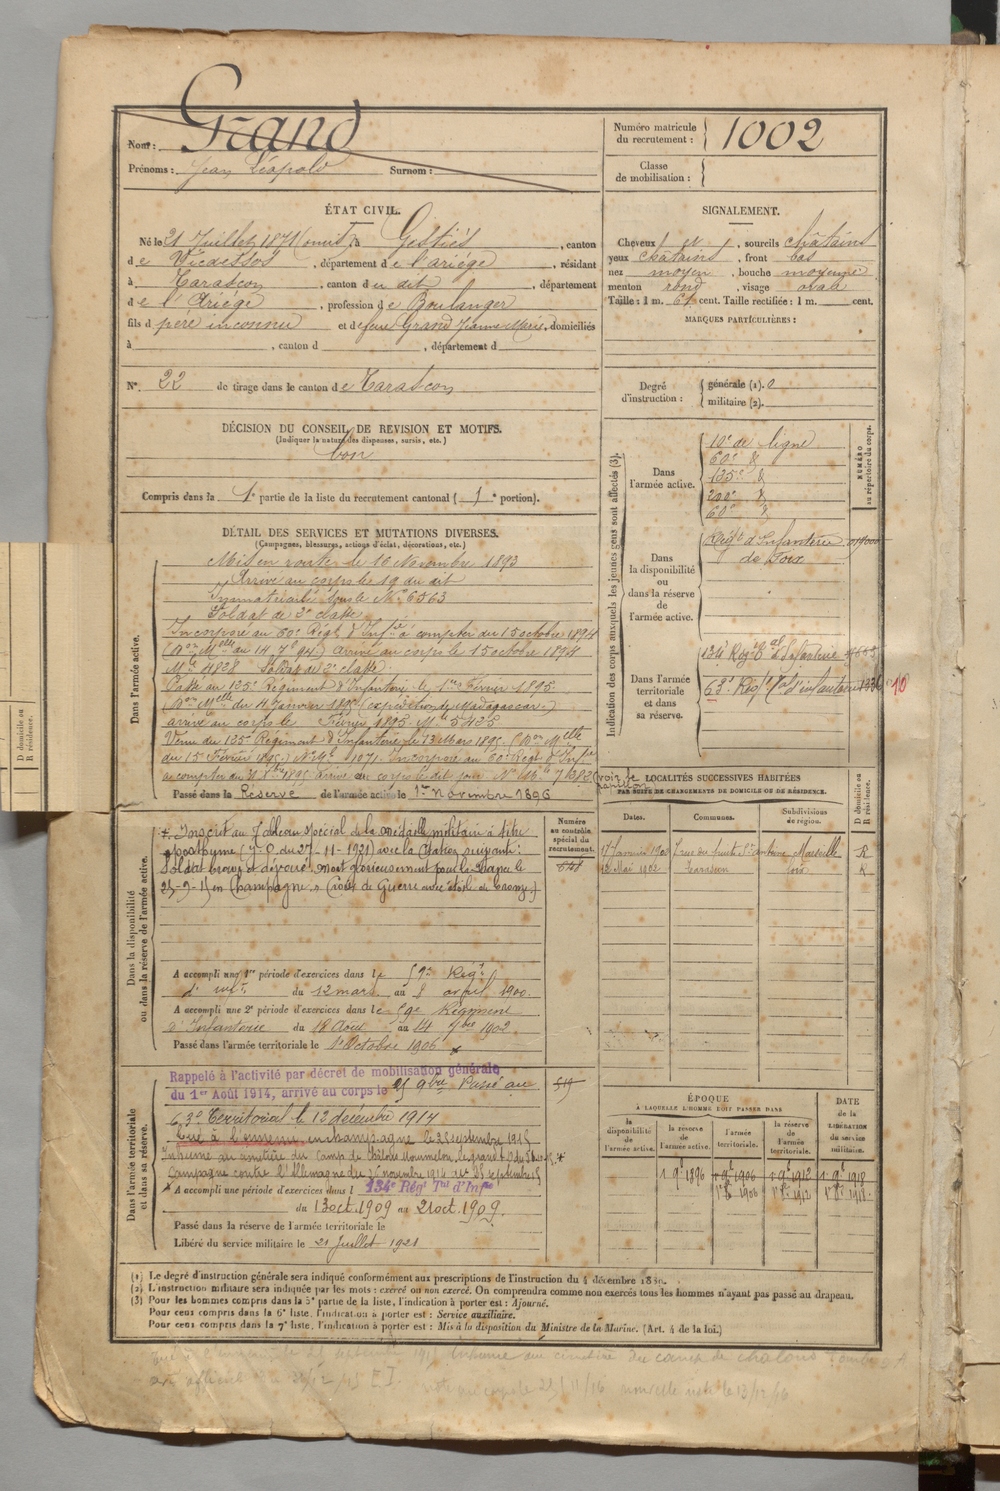 Nom : Grand
Prénoms : Jean Léopold Surnom :
Numéro matricule du recrutement : 1002
Classe de mobilisation :
ÉTAT CIVIL.
Né le 21 Juillet 1871 (omis), à Gestiés, canton
de Vicdessos, département de l'ariége, résidant
à Tarascon, canton du dit, département
de l'Ariége, profession de Boulanger
fils d père inconnu et de feue Grand Jeanne Marie, domiciliés
à , canton d , département d
N° 22 de tirage dans le canton de Tarascon
SIGNALEMENT.
Cheveux et , sourcils châtains
yeux châtains, front bas
nez moyen, bouche moyenne
menton rond, visage ovale
Taille : 1 m. 61 cent. Taille rectifiée : 1 m. cent.
MARQUES PARTICULIÈRES :
Degré d'instruction : générale (1). 0
militaire (2).
DÉCISION DU CONSEIL DE REVISION ET MOTIFS.
(Indiquer la nature des dispenses, sursis, etc.)
bon
Compris dans la 1e partie de la liste du recrutement cantonal ( 1e portion).
DÉTAIL DES SERVICES ET MUTATIONS DIVERSES.
(Campagnes, blessures, actions d'éclat, décorations, etc.)
Dans l'armée active.
Mis en route le 16 Novembre 1893
Arrivé au corps le 19 du dit
Immatriculé sous le N° 6563
Soldat de 2e classe
Incorporé au 60e Régt d'Infie à compter du 15 octobre 1894
arrivé au corps le 15 octobre 1894
Mle 4828 Soldat de 2e classe
Passé au 135e Régiment d'Infanterie le 1er Février 1895
(Don Melle du 4 Janvier 1895 (expédition de Madagascar)
arrivé au corps le Février 1895. Mle 5435
Venu du 135e Régiment d'Infanterie le 13 Mars 1895 (Don Melle
du 15 Février 1895)
Passé dans la Réserve de l'armée active le 1er Novembre 1896
Indication des corps auxquels les jeunes gens sont affectés (3).
NUMÉRO au répertoire du corps.
Dans l'armée active.
10e de ligne
60e d
135e d
200e d
60e d
Dans la disponibilité ou dans la réserve de l'armée active.
Régt d'Infanterie
de Foix
Dans l'armée territoriale et dans sa réserve.
134e Régt d'Infanterie
63e Régt d'infanterie
(voir le papillon)
LOCALITÉS SUCCESSIVES HABITÉES
PAR SUITE DE CHANGEMENTS DE DOMICILE OU DE RÉSIDENCE.
D domicile ou R résidence.
Dates. Communes. Subdivisions de région.
17 Janvier 1900 Marseille R
12 Mai 1902 Tarascon foix R
Numéro au contrôle spécial du recrutement.
Dans la disponibilité ou dans la réserve de l'armée active.
+ Inscrit au tableau spécial de la médaille militaire à titre
posthume (J.O. du 27-11-1921) avec la citation suivante :
Soldat brave et dévoué. Mort glorieusement pour la France le
25-9-15 en Champagne. (Croix de Guerre avec étoile de bronze)
A accompli une 1re période d'exercices dans le 59e Régt
d'infie du 12 mars au 8 avril 1900.
A accompli une 2e période d'exercices dans le Régiment
d'Infanterie du 18 Août au 14 7bre 1902
Passé dans l'armée territoriale le 1er Octobre 1906
Dans l'armée territoriale et dans sa réserve.
Rappelé à l'activité par décret de mobilisation générale
du 1er Août 1914, arrivé au corps le 25 9bre Passé au
63e Territorial le 12 décembre 1914
Tué à l'ennemi en champagne le 25 septembre 1915
Inhumé au cimetière du camp de Châlons Mourmelon
Campagne contre l'Allemagne du 25 novembre 1914 au 25 septembre 15
A accompli une période d'exercices dans l 134e Régt Tal d'Infie
du 13 oct. 1909 au 21 oct. 1909.
Passé dans la réserve de l'armée territoriale le
Libéré du service militaire le 21 Juillet 1921
ÉPOQUE
À LAQUELLE L'HOMME DOIT PASSER DANS
DATE de la LIBÉRATION du service militaire.
la disponibilité de l'armée active. la réserve de l'armée active. l'armée territoriale. la réserve de l'armée territoriale.
1 9e 1896 1 9e 1906 1 9e 1912 1 9e 1918
1er 8e 1906 1er 8e 1912 1er 8e 1918
(1) Le degré d'instruction générale sera indiqué conformément aux prescriptions de l'instruction du 4 décembre 1889.
(2) L'instruction militaire sera indiquée par les mots : exercé ou non exercé. On comprendra comme non exercés tous les hommes n'ayant pas passé au drapeau.
(3) Pour les hommes compris dans la 5e partie de la liste, l'indication à porter est : Ajourné.
Pour ceux compris dans la 6e liste, l'indication à porter est : Service auxiliaire.
Pour ceux compris dans la 7e liste, l'indication à porter est : Mis à la disposition du Ministre de la Marine. (Art. 4 de la loi.)
D domicile ou R résidence.